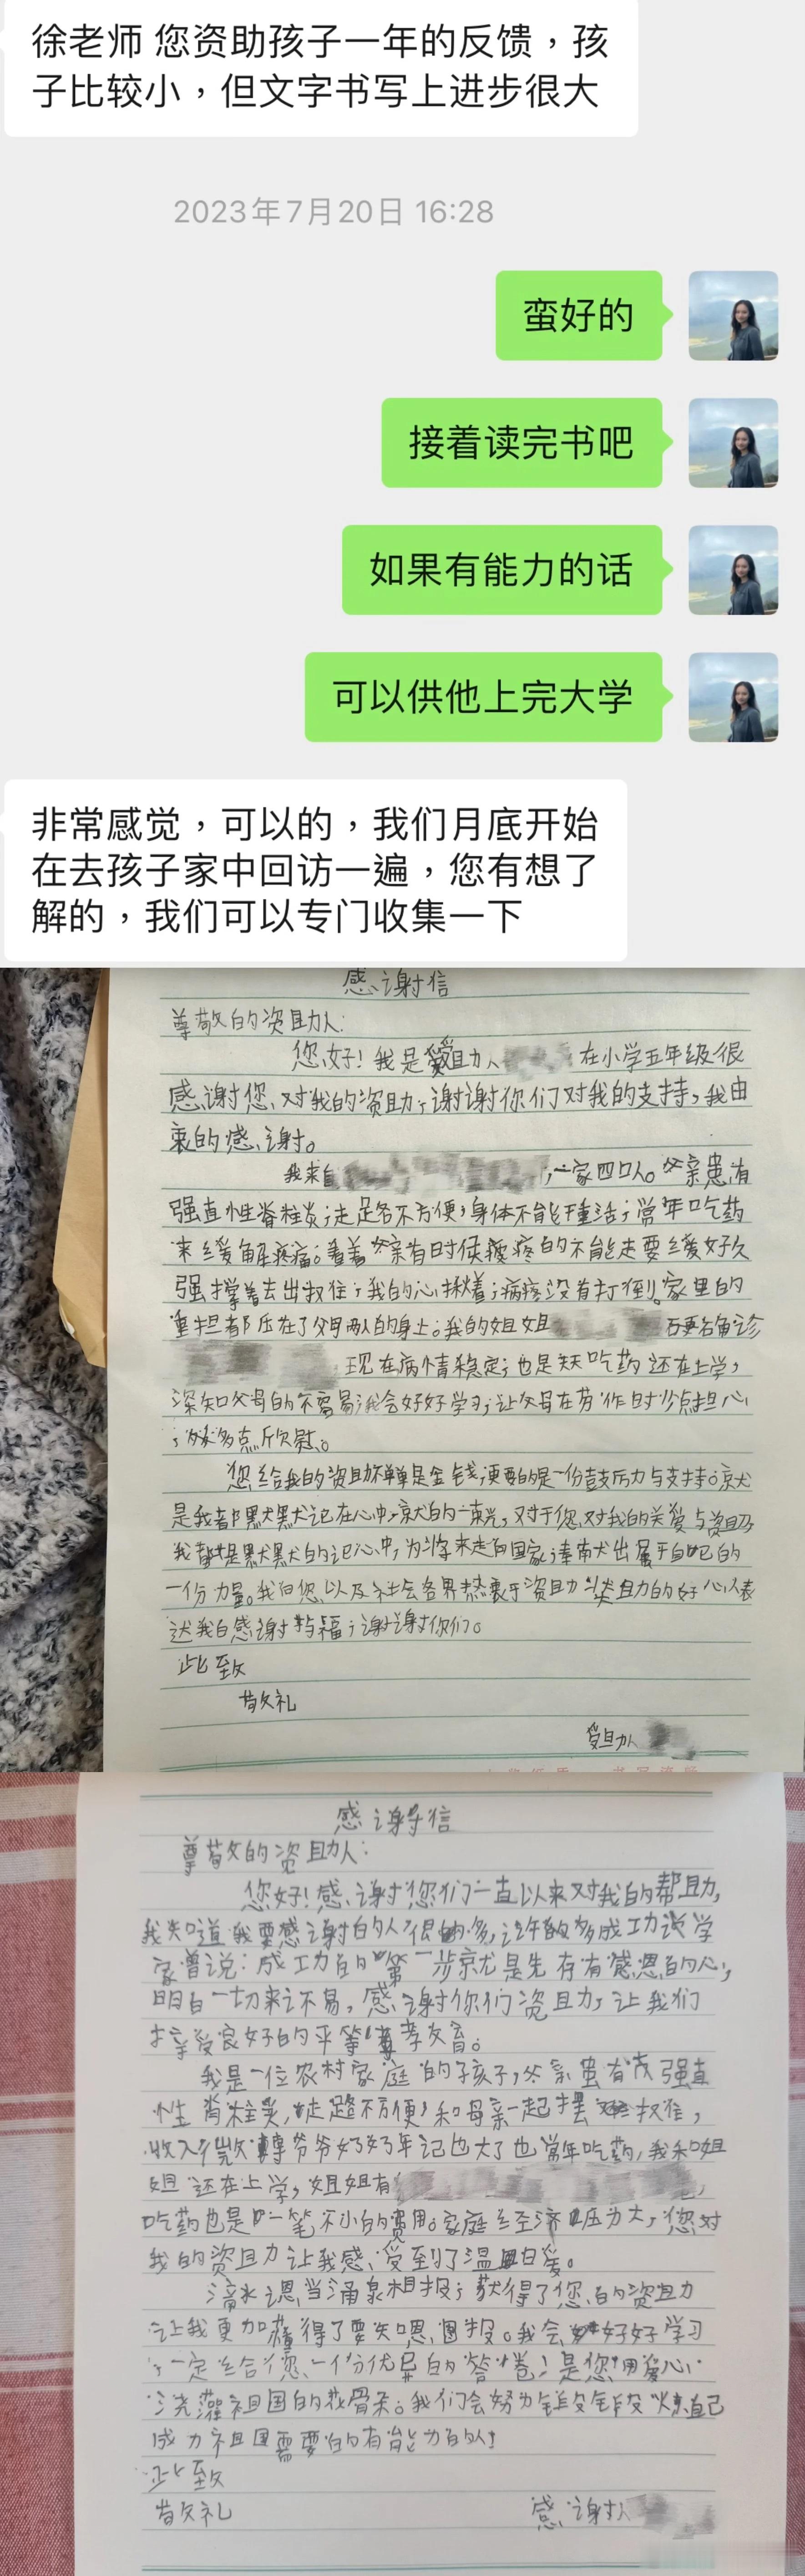 徐老师 您资助孩子一年的反馈，孩
子比较小，但文字书写上进步很大
2023年7月20日 16:28
蛮好的
接着读完书吧
如果有能力的话
可以供他上完大学
非常感觉，可以的，我们月底开始
在去孩子家中回访一遍，您有想了
解的，我们可以专门收集一下
感谢信
尊敬的资助人:
您好！我是受助人 在小学五年级很
感谢您对我的资助，谢谢你们对我的支持，我由
衷的感谢。
我来自 ，一家四口人。父亲患有
强直性脊柱炎，走路不方便，身体不能干重活，常年吃药
来缓解疼痛。看着父亲有时侯疼的不能走要缓好久
强撑着去出摊，我的心揪着，病疼没有打倒。家里的
重担都压在了父母两人的身上。我的姐姐 确诊
现在病情稳定，也是天天吃药 还在上学，
深知父母的不容易，我会好好学习，让父母在劳作时少点担心
，多点欣慰。
您给我的资助不单单是金钱，更要的是一份鼓励与支持。就
是我都默默记在心中，就的一束光，对于您对我的关爱与资助
我都是默默的记心中，为将来走向国家，奉献出属于自己的
一份力量。我向您以及社会各界热衷于资助 助的好心人表
达我的感谢与祝福，谢谢你们。
此致
敬礼
受助人
感谢信
尊敬的资助人:
您好！感谢您们一直以来对我的帮助，
我知道我要感谢的人很多，许多成功
家曾说：成功的第一步就是先存有感恩的心，
明白一切来之不易，感谢你们资助，让我们
享受良好的平等 教育。
我是一位农村家庭的孩子，父亲患有 强直
性脊柱炎，走路不方便，和母亲一起摆 摊，
收入微 爷爷奶奶年记也大了也常年吃药，我和姐
姐还在上学，姐姐有
吃药也是一笔不小的费用。家庭经济压力大，您对
我的资助让我感受到了温 爱。
滴水之恩，当涌泉相报，获得了您的资助
让我更加懂得了要知恩图报。我会好好学习
，一定给您一份优 的答卷！是您用爱心
浇灌祖国的花骨朵。我们会努力锻 炼自己
成为祖国需要的有能力的人！
此致
敬礼
感谢人